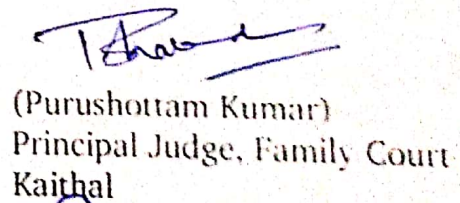 (Purushottam Kumar)
Principal Judge, Family Court
Kaithal